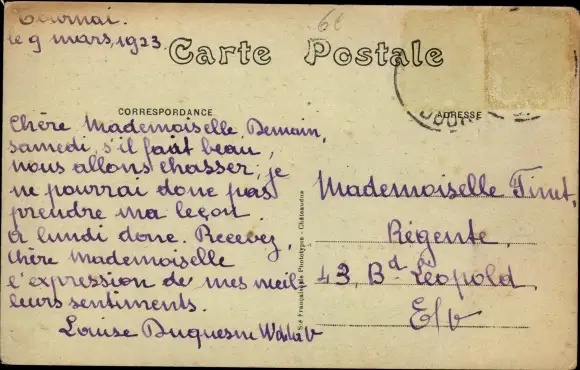 Tournai.
le 9 mars, 1923.
6e
Carte Postale
CORRESPONDANCE
ADRESSE
Chère Mademoiselle, Demain,
samedi, s'il fait beau,
nous allons chasser; je
ne pourrai donc pas
prendre ma leçon.
A lundi donc. Recevez,
Chère Mademoiselle
l'expression de mes meil-
leurs sentiments.
Louise Duquesne
Mademoiselle Finet,
Régente,
43, Bd Léopold,
E/V
Sté Française de Phototypie - Châteaudun